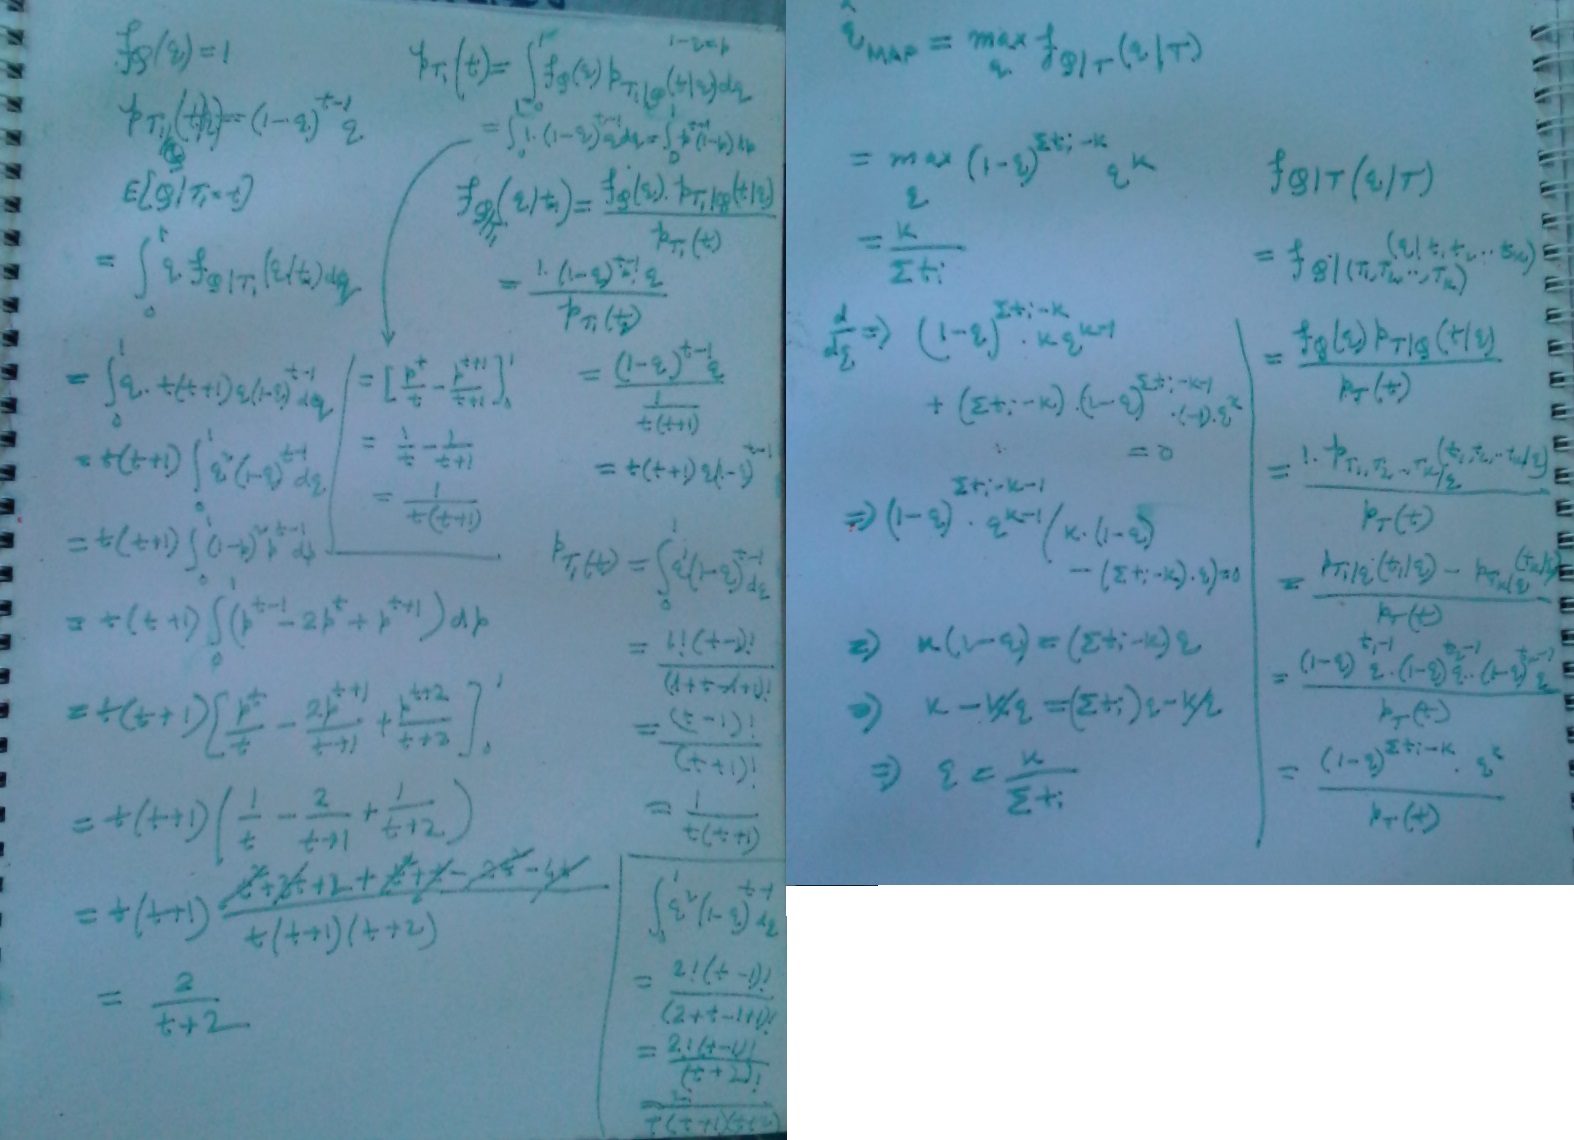 f_Q(q) = 1
p_{T_1|Q}(t|q) = (1-q)^{t-1} q
E[Q|T_1=t]
= ∫_0^1 q f_{Q|T_1}(q|t) dq
= ∫_0^1 q · t(t+1) q(1-q)^{t-1} dq
= t(t+1) ∫_0^1 q^2 (1-q)^{t-1} dq
= t(t+1) ∫_0^1 (1-p)^2 p^{t-1} dp
= t(t+1) ∫_0^1 (p^{t-1} - 2p^t + p^{t+1}) dp
= t(t+1) [p^t/t - 2p^{t+1}/(t+1) + p^{t+2}/(t+2)]_0^1
= t(t+1) (1/t - 2/(t+1) + 1/(t+2))
= t(t+1) (t^2+2t+2 + t^2+t - 2t^2 - 4t)/(t(t+1)(t+2))
= 2/(t+2)
p=1-q
p_{T_1}(t) = ∫_0^1 f_Q(q) p_{T_1|Q}(t|q) dq
= ∫_0^1 1·(1-q)^{t-1} q dq = ∫_0^1 p^{t-1}(1-p) dp
= [p^t/t - p^{t+1}/(t+1)]_0^1
= 1/t - 1/(t+1)
= 1/(t(t+1))
f_{Q|T_1}(q|t) = f_Q(q) · p_{T_1|Q}(t|q) / p_{T_1}(t)
= 1·(1-q)^{t-1} q / p_{T_1}(t)
= (1-q)^{t-1} q / (1/(t(t+1)))
= t(t+1) q(1-q)^{t-1}
p_{T_1}(t) = ∫_0^1 q^1 (1-q)^{t-1} dq
= 1!(t-1)! / (1+t-1+1)!
= (t-1)! / (t+1)!
= 1/(t(t+1))
∫_0^1 q^2 (1-q)^{t-1} dq
= 2!(t-1)! / (2+t-1+1)!
= 2!(t-1)! / (t+2)!
= 2 / (t(t+1)(t+2))
q̂_{MAP} = max_q f_{Q|T}(q|T)
= max_q (1-q)^{Σt_i-k} q^k
= k/Σt_i
d/dq ⇒ (1-q)^{Σt_i-k} · k q^{k-1}
+ (Σt_i-k)·(1-q)^{Σt_i-k-1}·(-1)·q^k
= 0
⇒ (1-q)^{Σt_i-k-1} · q^{k-1} (k·(1-q)
- (Σt_i-k)·q) = 0
⇒ k(1-q) = (Σt_i-k) q
⇒ k - kq = (Σt_i) q - kq
⇒ q = k/Σt_i
f_{Q|T}(q|T)
= f_{Q|(T_1,T_2,..,T_k)}(q|t_1,t_2,...t_k)
= f_Q(q) p_{T|Q}(t|q) / p_T(t)
= 1·p_{T_1,T_2,..,T_k|q}(t_1,t_2,..t_k|q) / p_T(t)
= p_{T_1|q}(t_1|q) -- p_{T_k|q}(t_k|q) / p_T(t)
= (1-q)^{t_1-1} q·(1-q)^{t_2-1} q··(1-q)^{t_k-1} q / p_T(t)
= (1-q)^{Σt_i-k} · q^k / p_T(t)